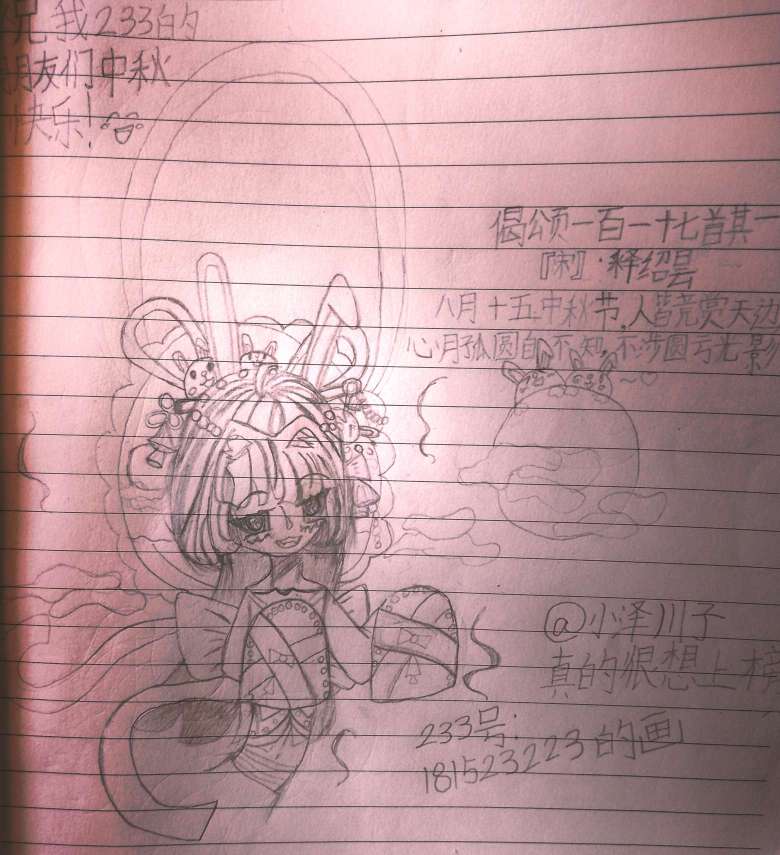 祝我233的
朋友们中秋
快乐!
偈颂一百一十七首其一
『宋』·释绍昙
八月十五中秋节,人皆竞赏天边
心月孤圆自不知,不涉圆亏光影
~♡
@小泽川子
真的很想上榜
233号:
181523223的画